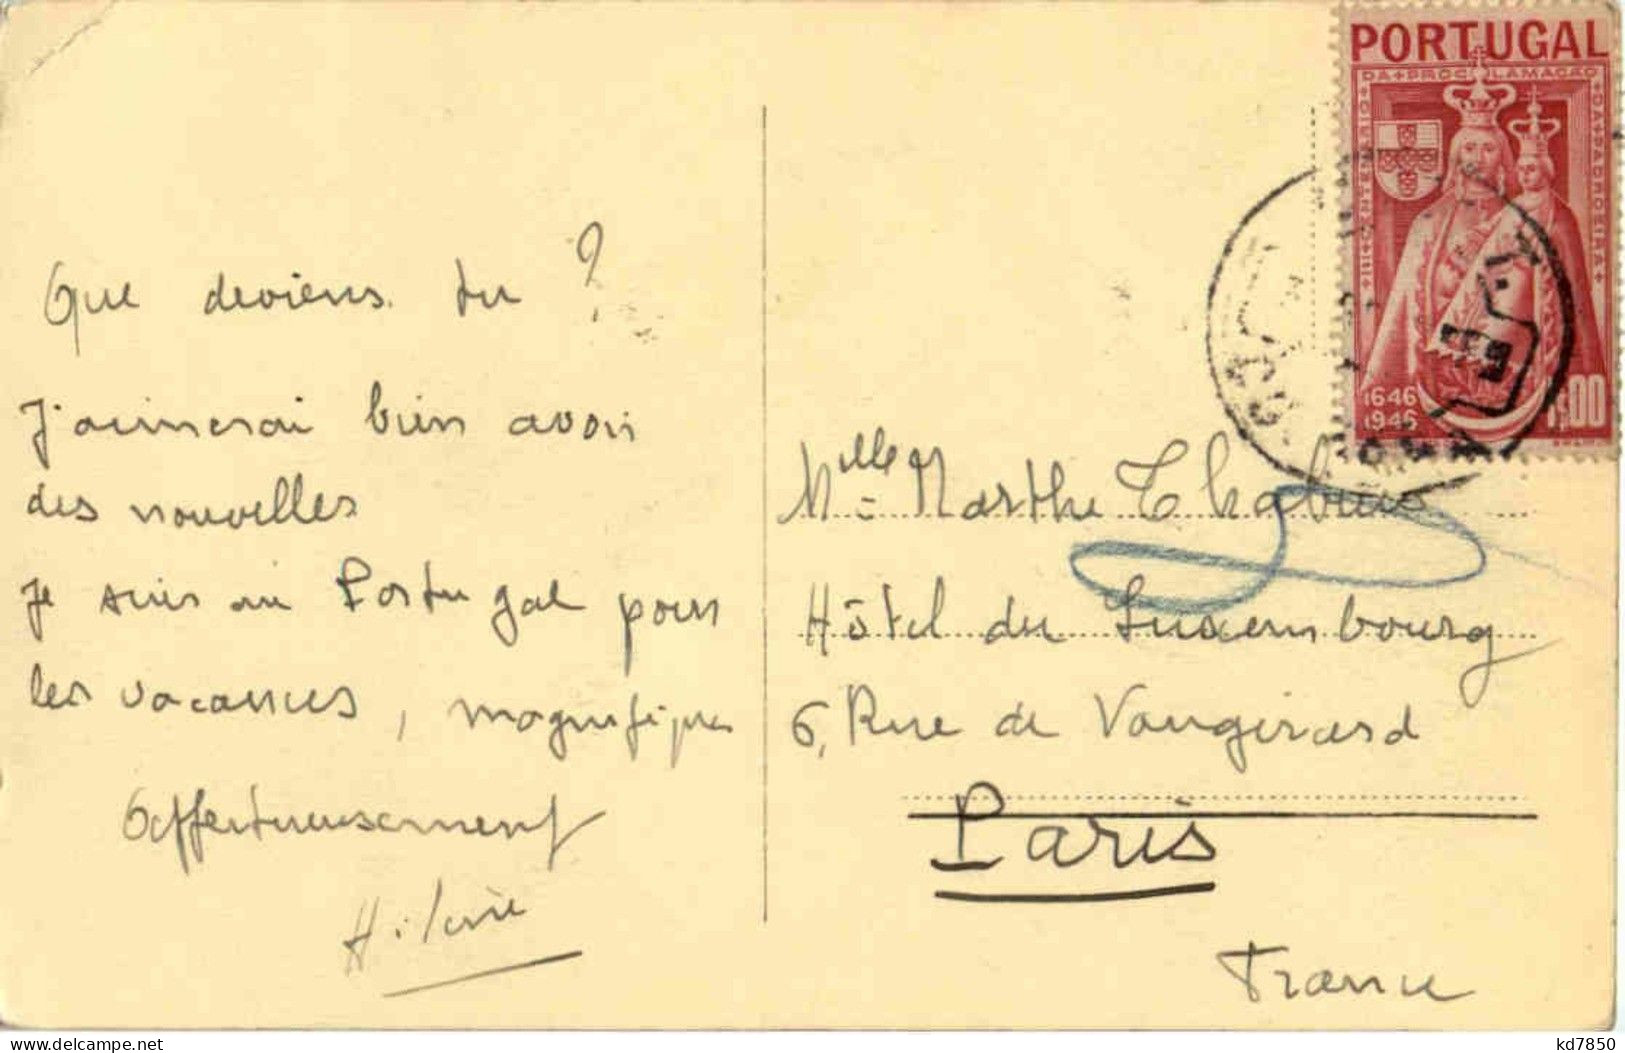 Que deviens tu ?
J'aimerai bien avoir
des nouvelles
Je suis au Portugal pour
les vacances, magnifiques
Affectueusement
Hilaire
PORTUGAL
DA PROCLAMAÇÃO
DA PADROEIRA
CENTENÁRIO
1646
1946
1$00
Mlle Marthe
Hôtel du Luxembourg
6, Rue de Vaugirard
Paris
France
delcampe.net
kd7850